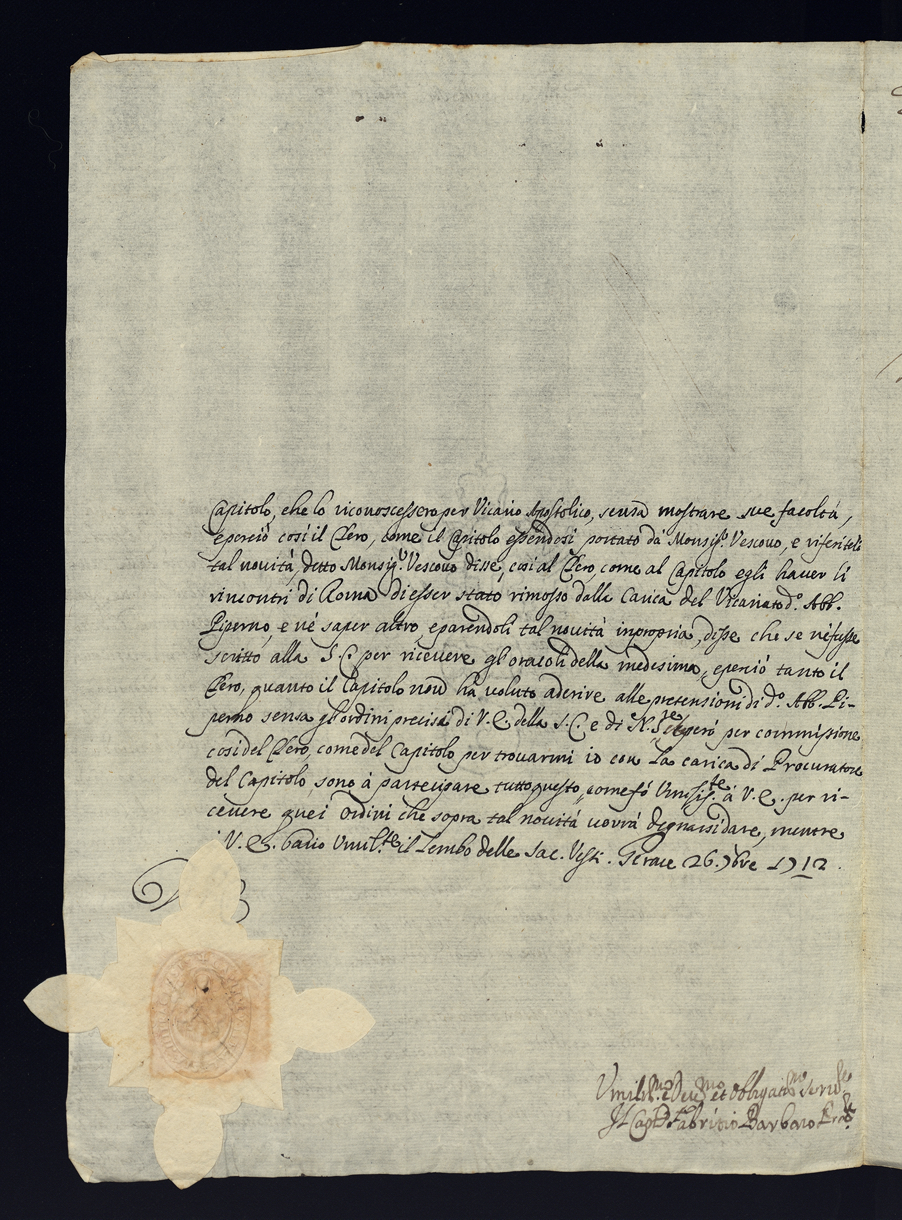 Capitolo, che lo riconoscessero per Vicario Apostolico, senza mostrare sue facoltà,
e perciò così il Clero, come il Capitolo essendosi portato da Monsig.r Vescovo, e riferitoli
tal novità, detto Monsig.r Vescovo disse, così al Clero, come al Capitolo egli haver li
rincontri di Roma di esser stato rimosso dalla Carica del Vicariato d.o Abb.
Piperno, e nè saper altro, e parendoli tal novità inpropria, disse che se nè fusse
scritto alla S. C. per ricevere gl'oracoli della medesima, e perciò tanto il
Clero, quanto il Capitolo non hà voluto aderire alle pretensioni di d.o Abb. Pi-
perno senza gl'ordini precisi di V. E. della S. C. e di N. S.re però per commissione
così del Clero, come del Capitolo per trovarmi io con la carica di Procuratore
del Capitolo sono à partecipare tutto questo, come fò Umiliss.te à V. E. per ri-
cevere quei ordini che sopra tal novità vorrà degnarsi dare, mentre
V. E. bacio Umil.te il Lembo delle Sac. Vesti. Gerace 26. 9bre 1712.
Umiliss.mo e Dev.mo et Obligatiss.mo Serv.re
Il Cap.o Fabritio Barbaro Proc.re